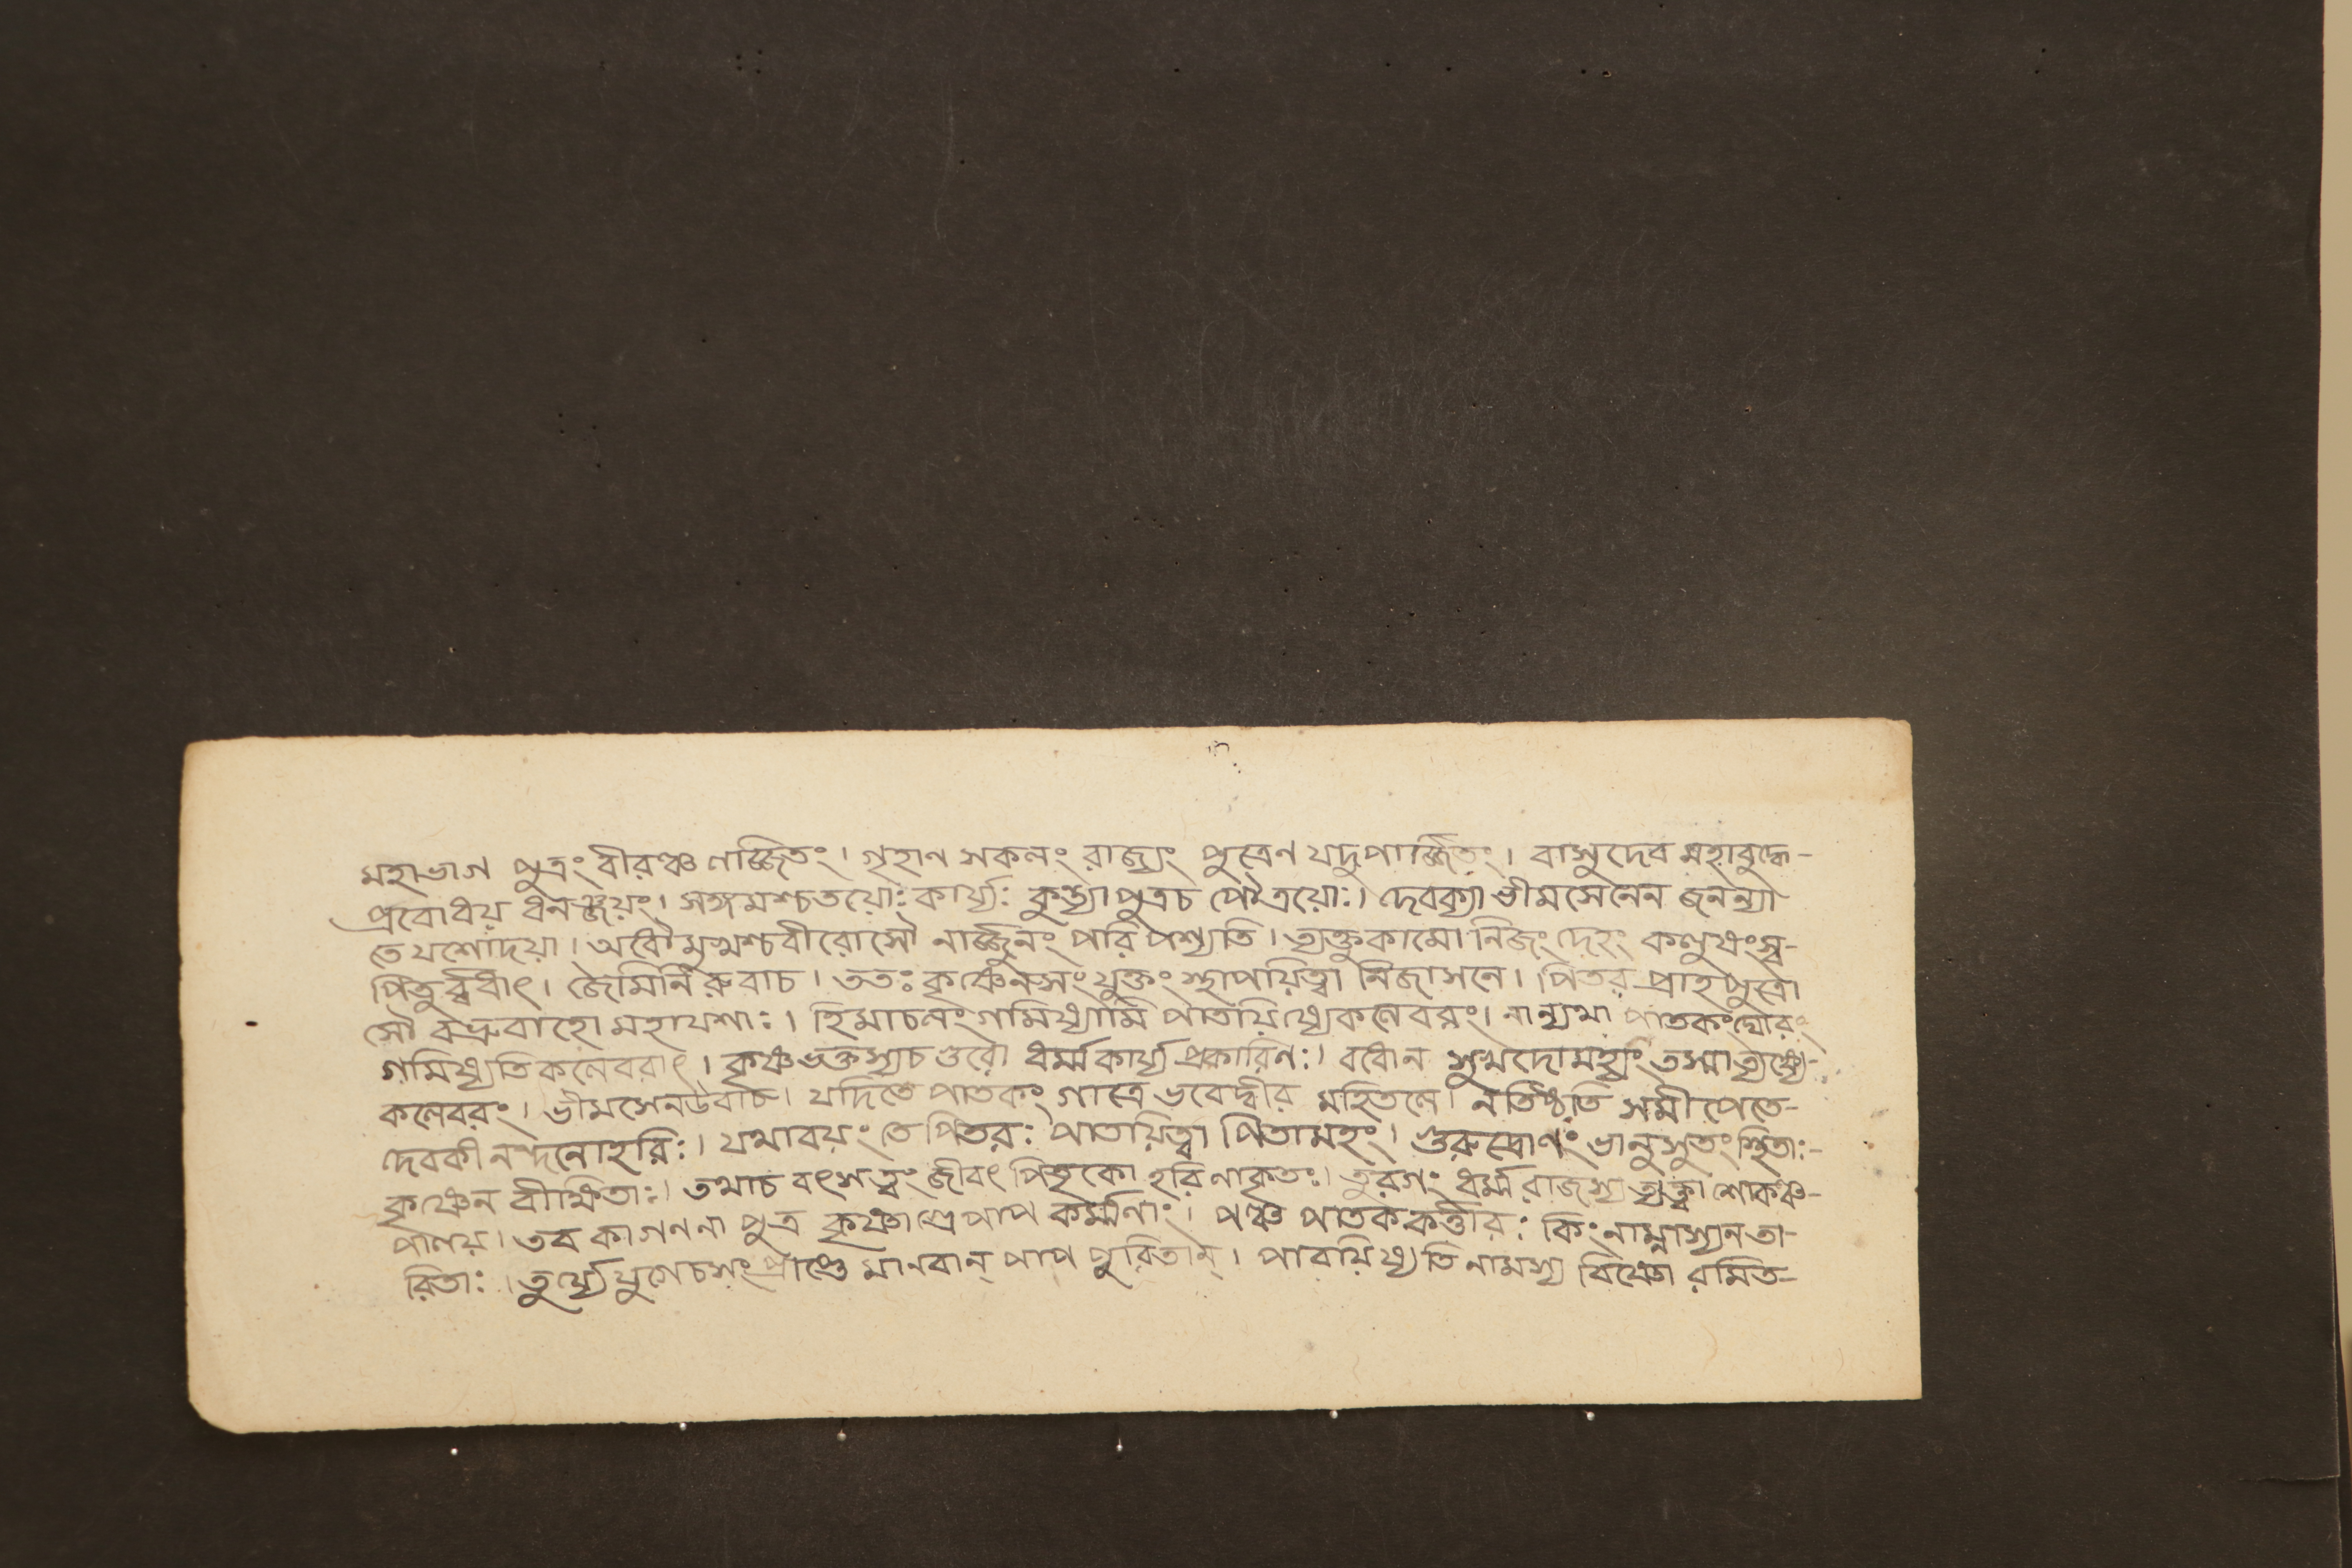 মহাভাগ পুত্রং বীরঞ্চ ণার্জ্জিতং। গৃহান সকলং রাজ্যং পুত্রেণ যদুপার্জ্জিতং। বাসুদেব মহাবুদ্ধে-
প্রবোধয় ধনঞ্জয়ং। সঙ্গমশ্চতয়োঃ কার্য্যঃ কুন্ত্যা পুত্রচ পৌত্রয়োঃ। দেবক্যা ভীমসেনেন জনন্যা
তে যশোদয়া। অধৌমুখশ্চবীরোসৌ নার্জ্জুনং পরি পশ্যতি। ত্যক্তুকামো নিজং দেহং কলুষংস্ব-
পিতুর্ব্বধাৎ। জৈমিনিরুবাচ। ততঃ কৃষ্ণেনসংযুক্তং স্থাপয়িত্বা নিজাসনে। পিতরং প্রাহ পুত্রো
সৌ বভ্রুবাহো মহাযশাঃ। হিমাচলং গমিষ্যামি পাতয়িষ্যেকলেবরং। নান্যথা পাতকংঘোরং
গমিষ্যতি কলেবরাৎ। কৃষ্ণভক্তস্যচ গুরো ধর্ম্মকার্য্য প্রকারিণঃ। বধোন সুখদোমহ্যং তস্মাত্যক্ষ্যে-
কলেবরং। ভীমসেনউবাচ। যদিতে পাতকং গাত্রে ভবেদ্বীর মহিতলে। নতিষ্ঠতি সমীপেতে-
দেবকী নন্দনোহরিঃ। যথাবয়ং তে পিতরঃ পাতয়িত্বা পিতামহং। গুরুদ্রোণং ভানুসুতং স্থিতাঃ-
কৃষ্ণেন বীক্ষিতাঃ। তথাচ বৎসত্বং জীবৎ পিতৃকো হরিণাকৃতঃ। তুরগং ধর্ম্মরাজস্য ত্যক্ত্বা শোকঞ্চ-
পালয়। তব কা গননা পুত্র কৃষ্ণাগ্রে পাপ কর্ম্মনাং। পঞ্চ পাতককর্ত্তারঃ কিং নাম্নাস্যনতা-
রিতাঃ। তুর্য্যে যুগেচসংপ্রাপ্তে মানবান্ পাপ পুরিতান্। পাবয়িষ্যতি নামস্য বিষ্ণো রমিত-